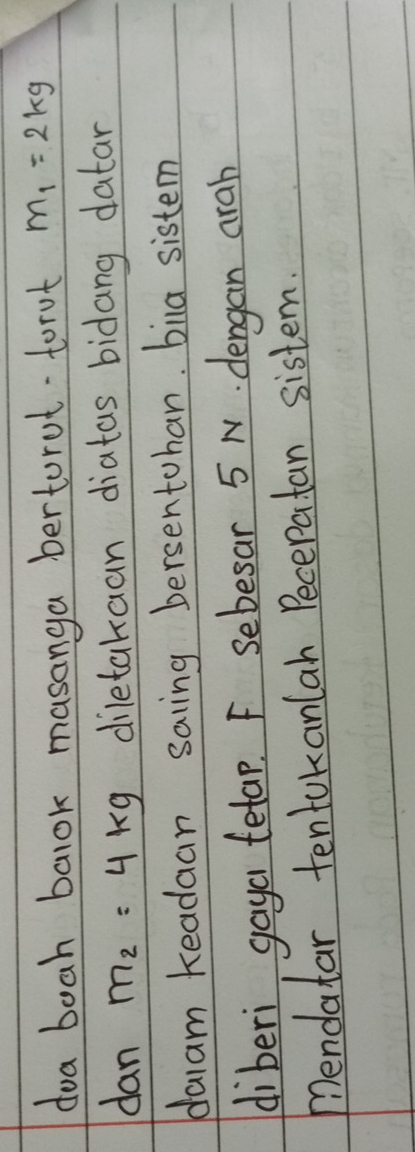 dua buah balok masanya berturut - turut m₁ = 2 kg
dan m₂ = 4 kg diletakaan diatas bidang datar
dalam keadaan saling bersentuhan. bila sistem
diberi gaya tetap. F sebesar 5 N. dengan arah
Mendatar tentukanlah Pecepatan sistem.